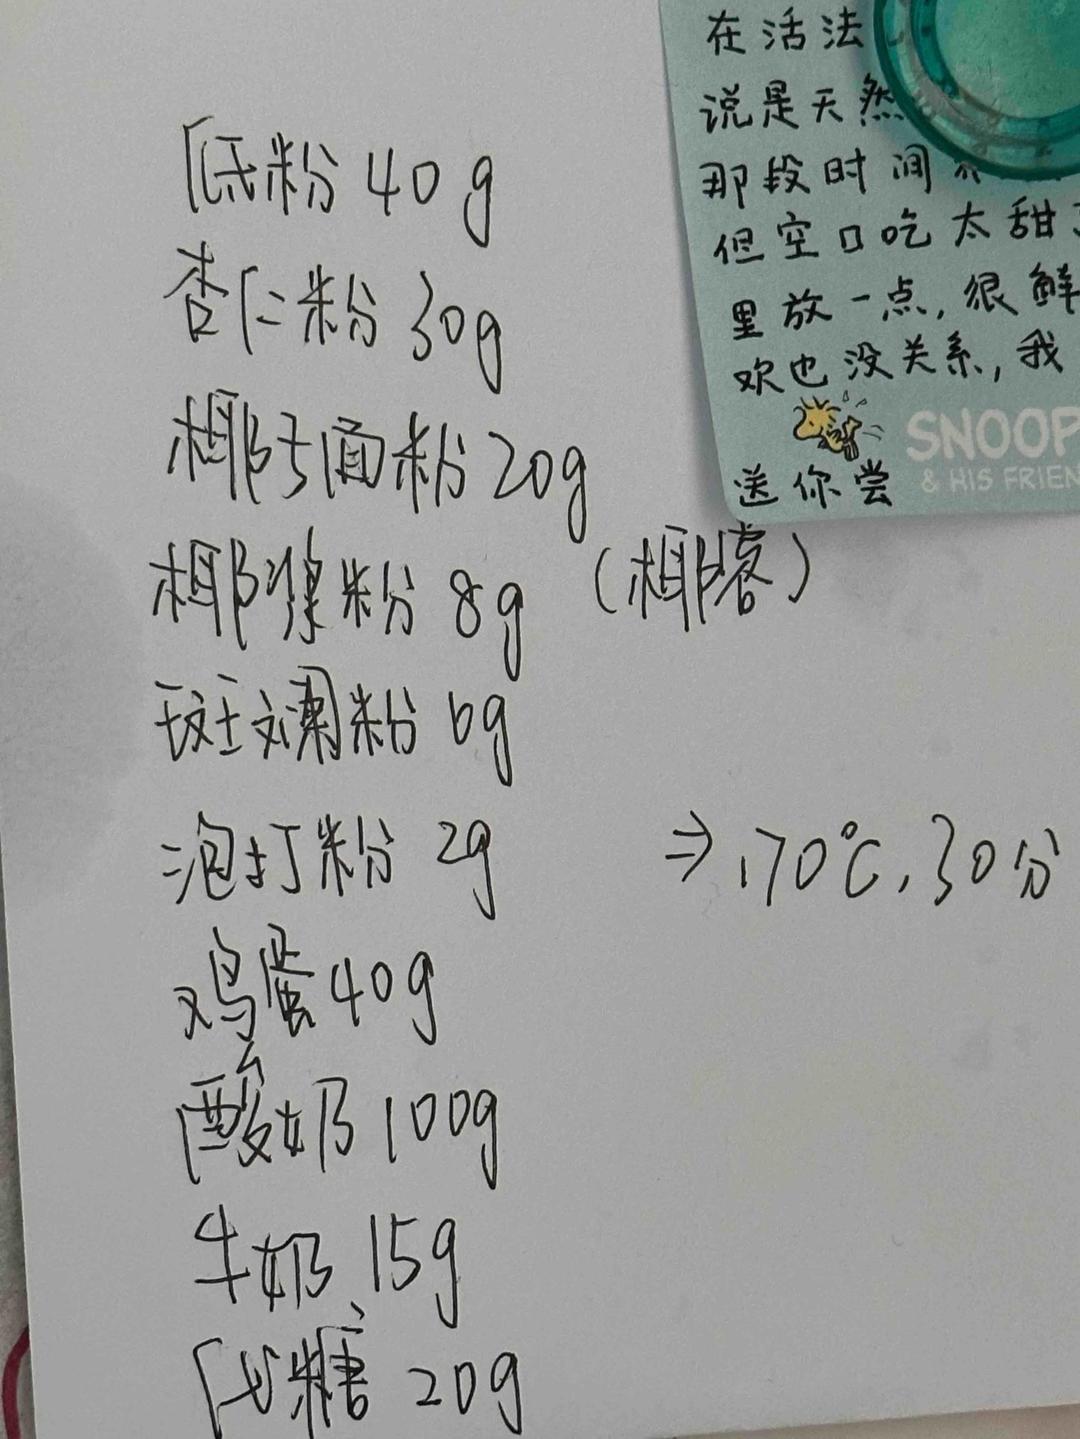 低粉 40g
杏仁粉 30g
椰子面粉 20g
椰浆粉 8g (椰蓉)
斑斓粉 6g
泡打粉 2g ⇒ 170℃, 30分
鸡蛋 40g
酸奶 100g
牛奶 15g
代糖 20g
在活法
说是天然
那段时间
但空口吃太甜了
里放一点, 很鲜
欢也没关系, 我
SNOOP
& HIS FRIEN
送你尝